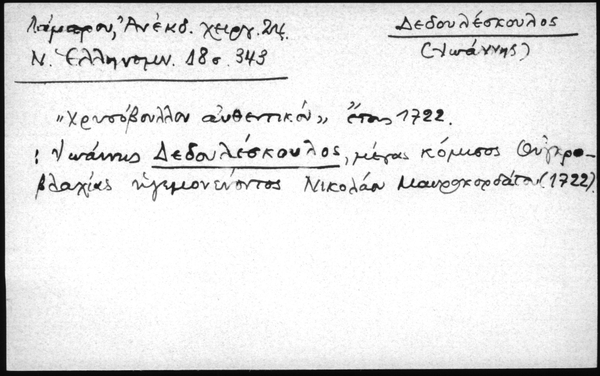 Λάμπρου, Ἀνέκδ. χειργ. 24.
Ν. Ἑλληνομν. 18 σ. 343
Δεδουλέσκουλος
(Ἰωάννης)
"Χρυσόβουλλον αὐθεντικόν" ἔτους 1722.
: Ἰωάννης Δεδουλέσκουλος, μέγας κόμισος Οὐγκρο-
βλαχίας ἡγεμονεύοντος Νικολάου Μαυροκορδάτου (1722).